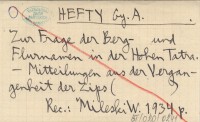 O HEFTY Gy. A.
Zur Frage der Berg- und
Flurnamen in der Hohen Tatra.
- Mitteilungen aus der Vergan-
genheit der Zips (
Rec.: Mileski W. 1934 p.